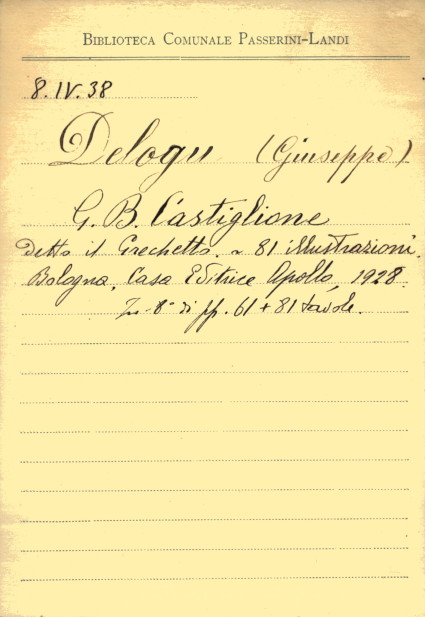 BIBLIOTECA COMUNALE PASSERINI-LANDI
8.IV.38
Delogu (Giuseppe)
G. B. Castiglione
detto il Grechetto. ~ 81 illustrazioni.
Bologna, Casa Editrice Apollo, 1928.
In-8° di pp. 61 + 81 tavole.